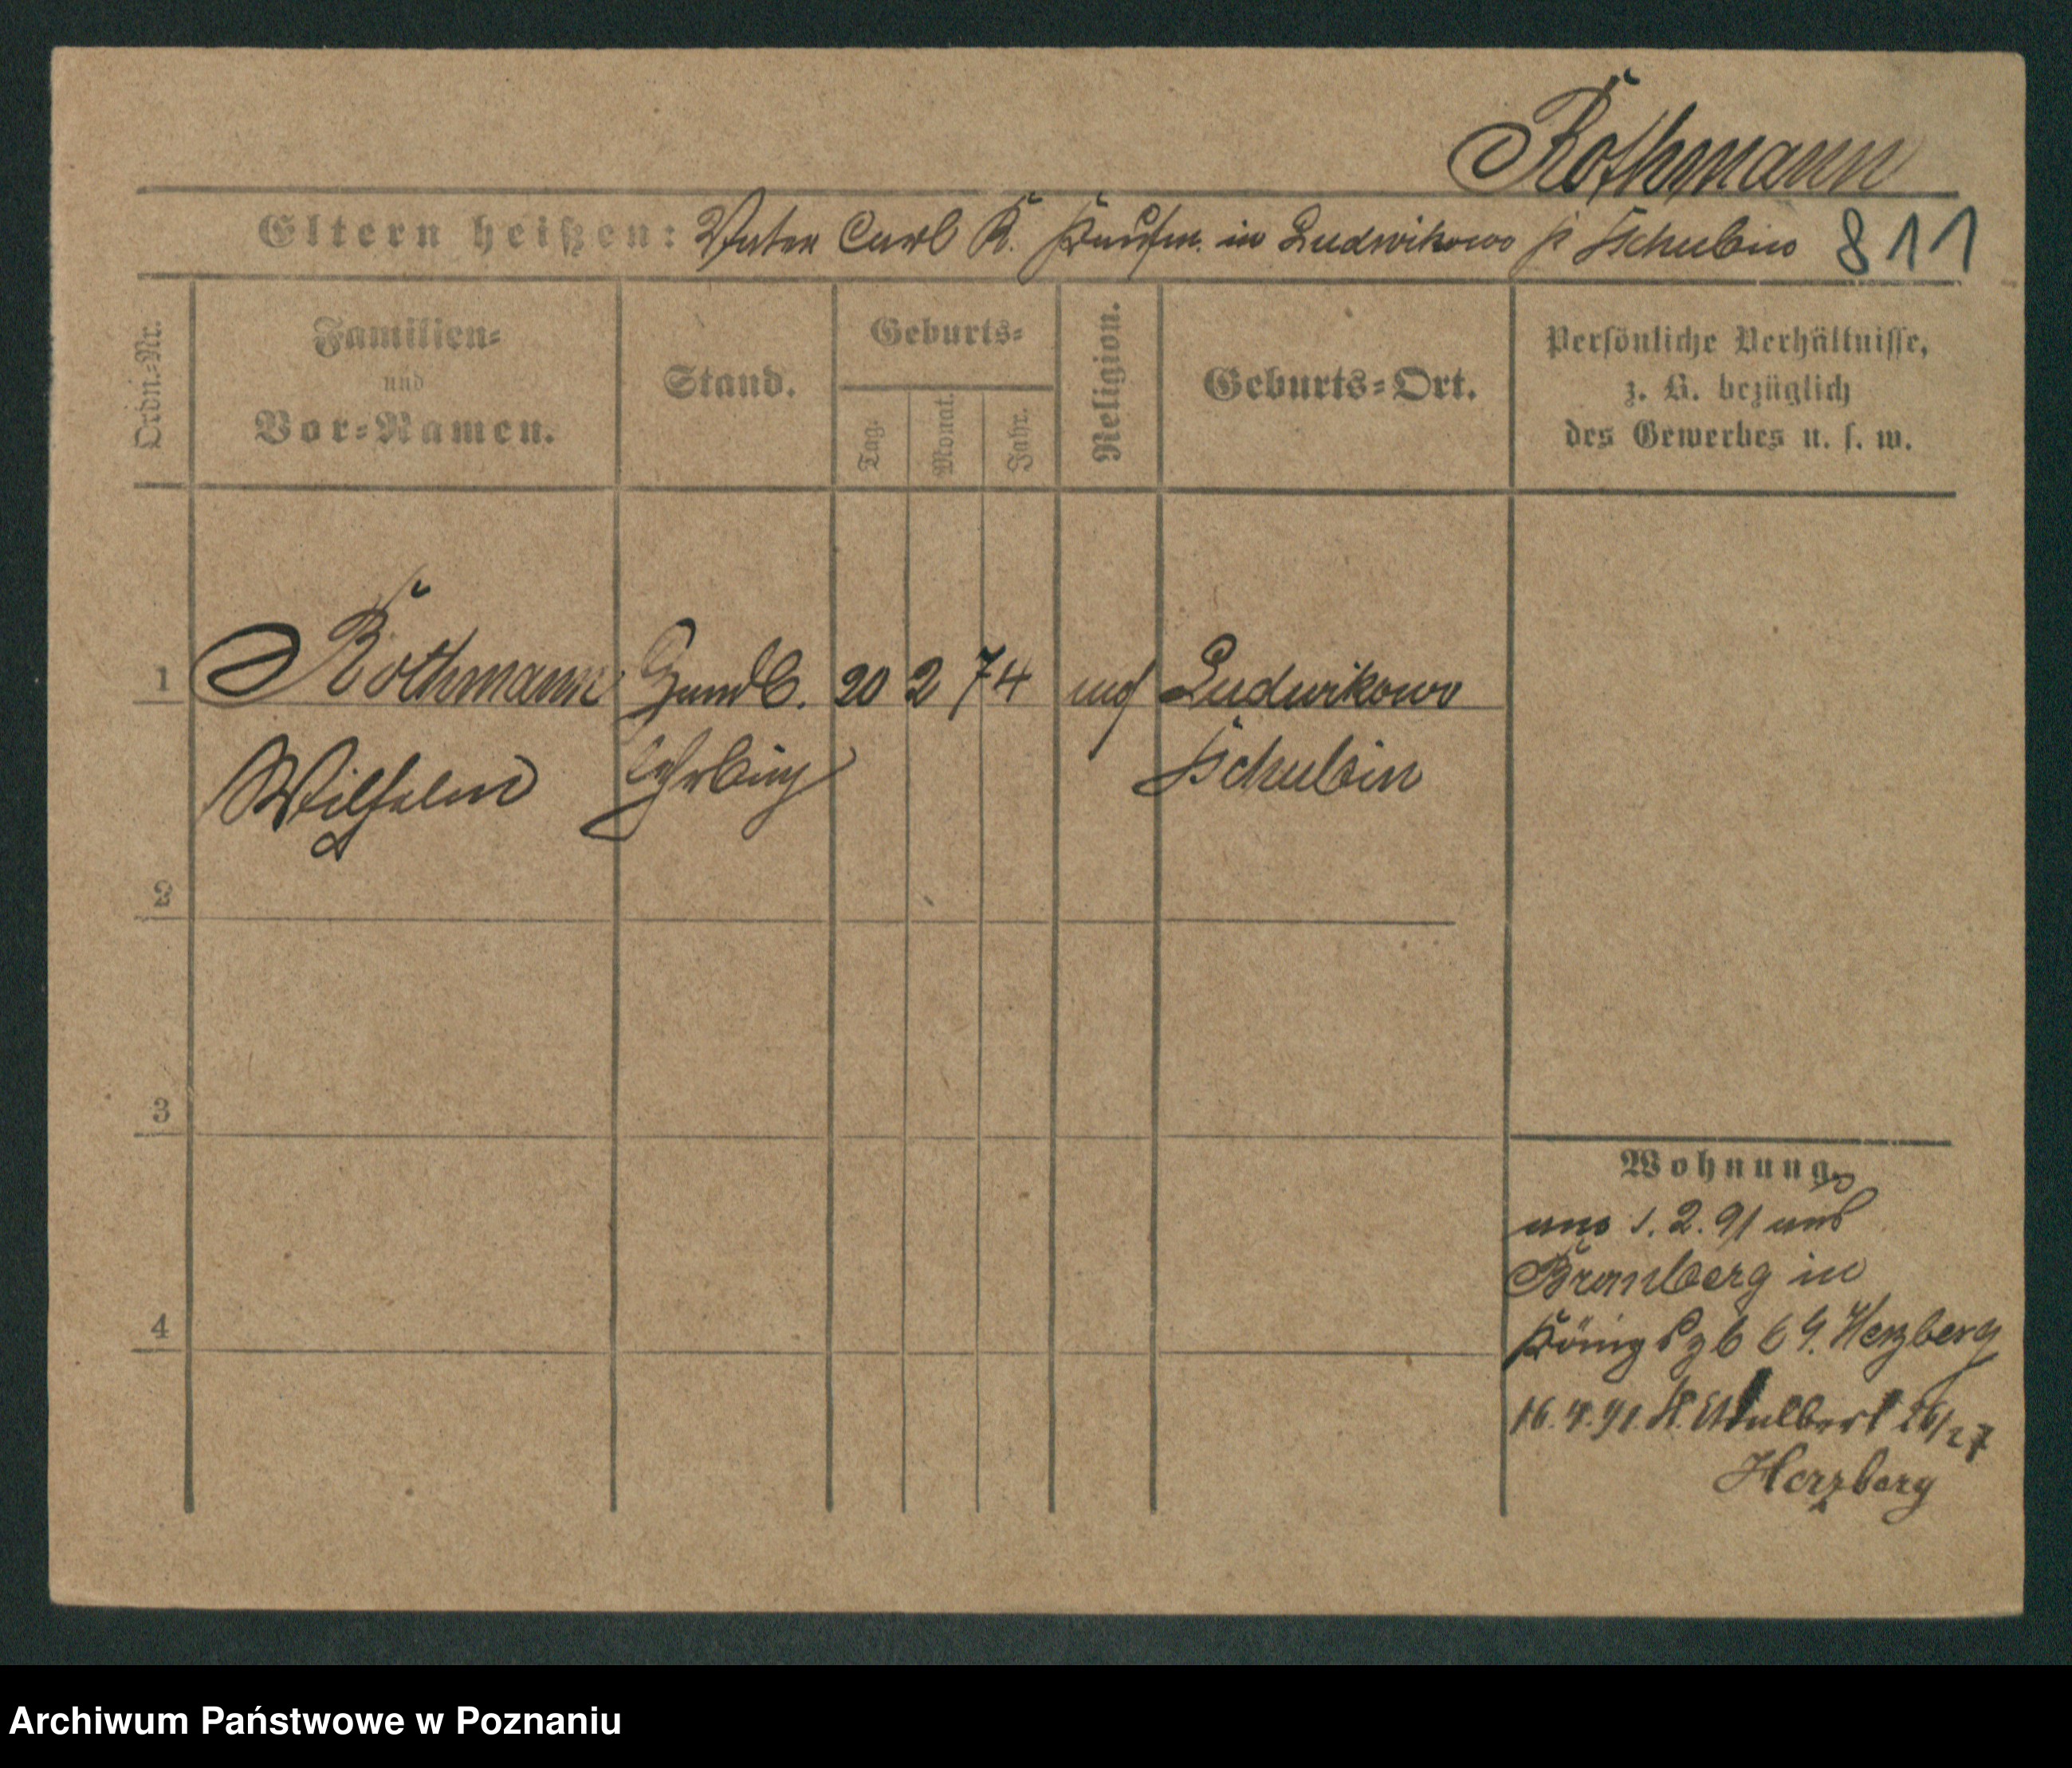 Rothmann
Eltern heißen: Vater Carl R. Kaufm. in Ludwikowo p Schubin 811
Ordn.-Nr.
Familien-
und
Vor-Namen.
Stand.
Geburts-
Tag.
Monat.
Jahr.
Religion.
Geburts-Ort.
Persönliche Verhältnisse,
z. B. bezüglich
des Gewerbes u. s. w.
1 Rothmann Handl. 20 2 74 Ludwikowo
Wilhelm lehrling Schubin
2
3
4
Wohnung.
1.2.91 aus
Bromberg in
Herzberg
16.4.91. St. Adalbert 26/27
Herzberg
Archiwum Państwowe w Poznaniu